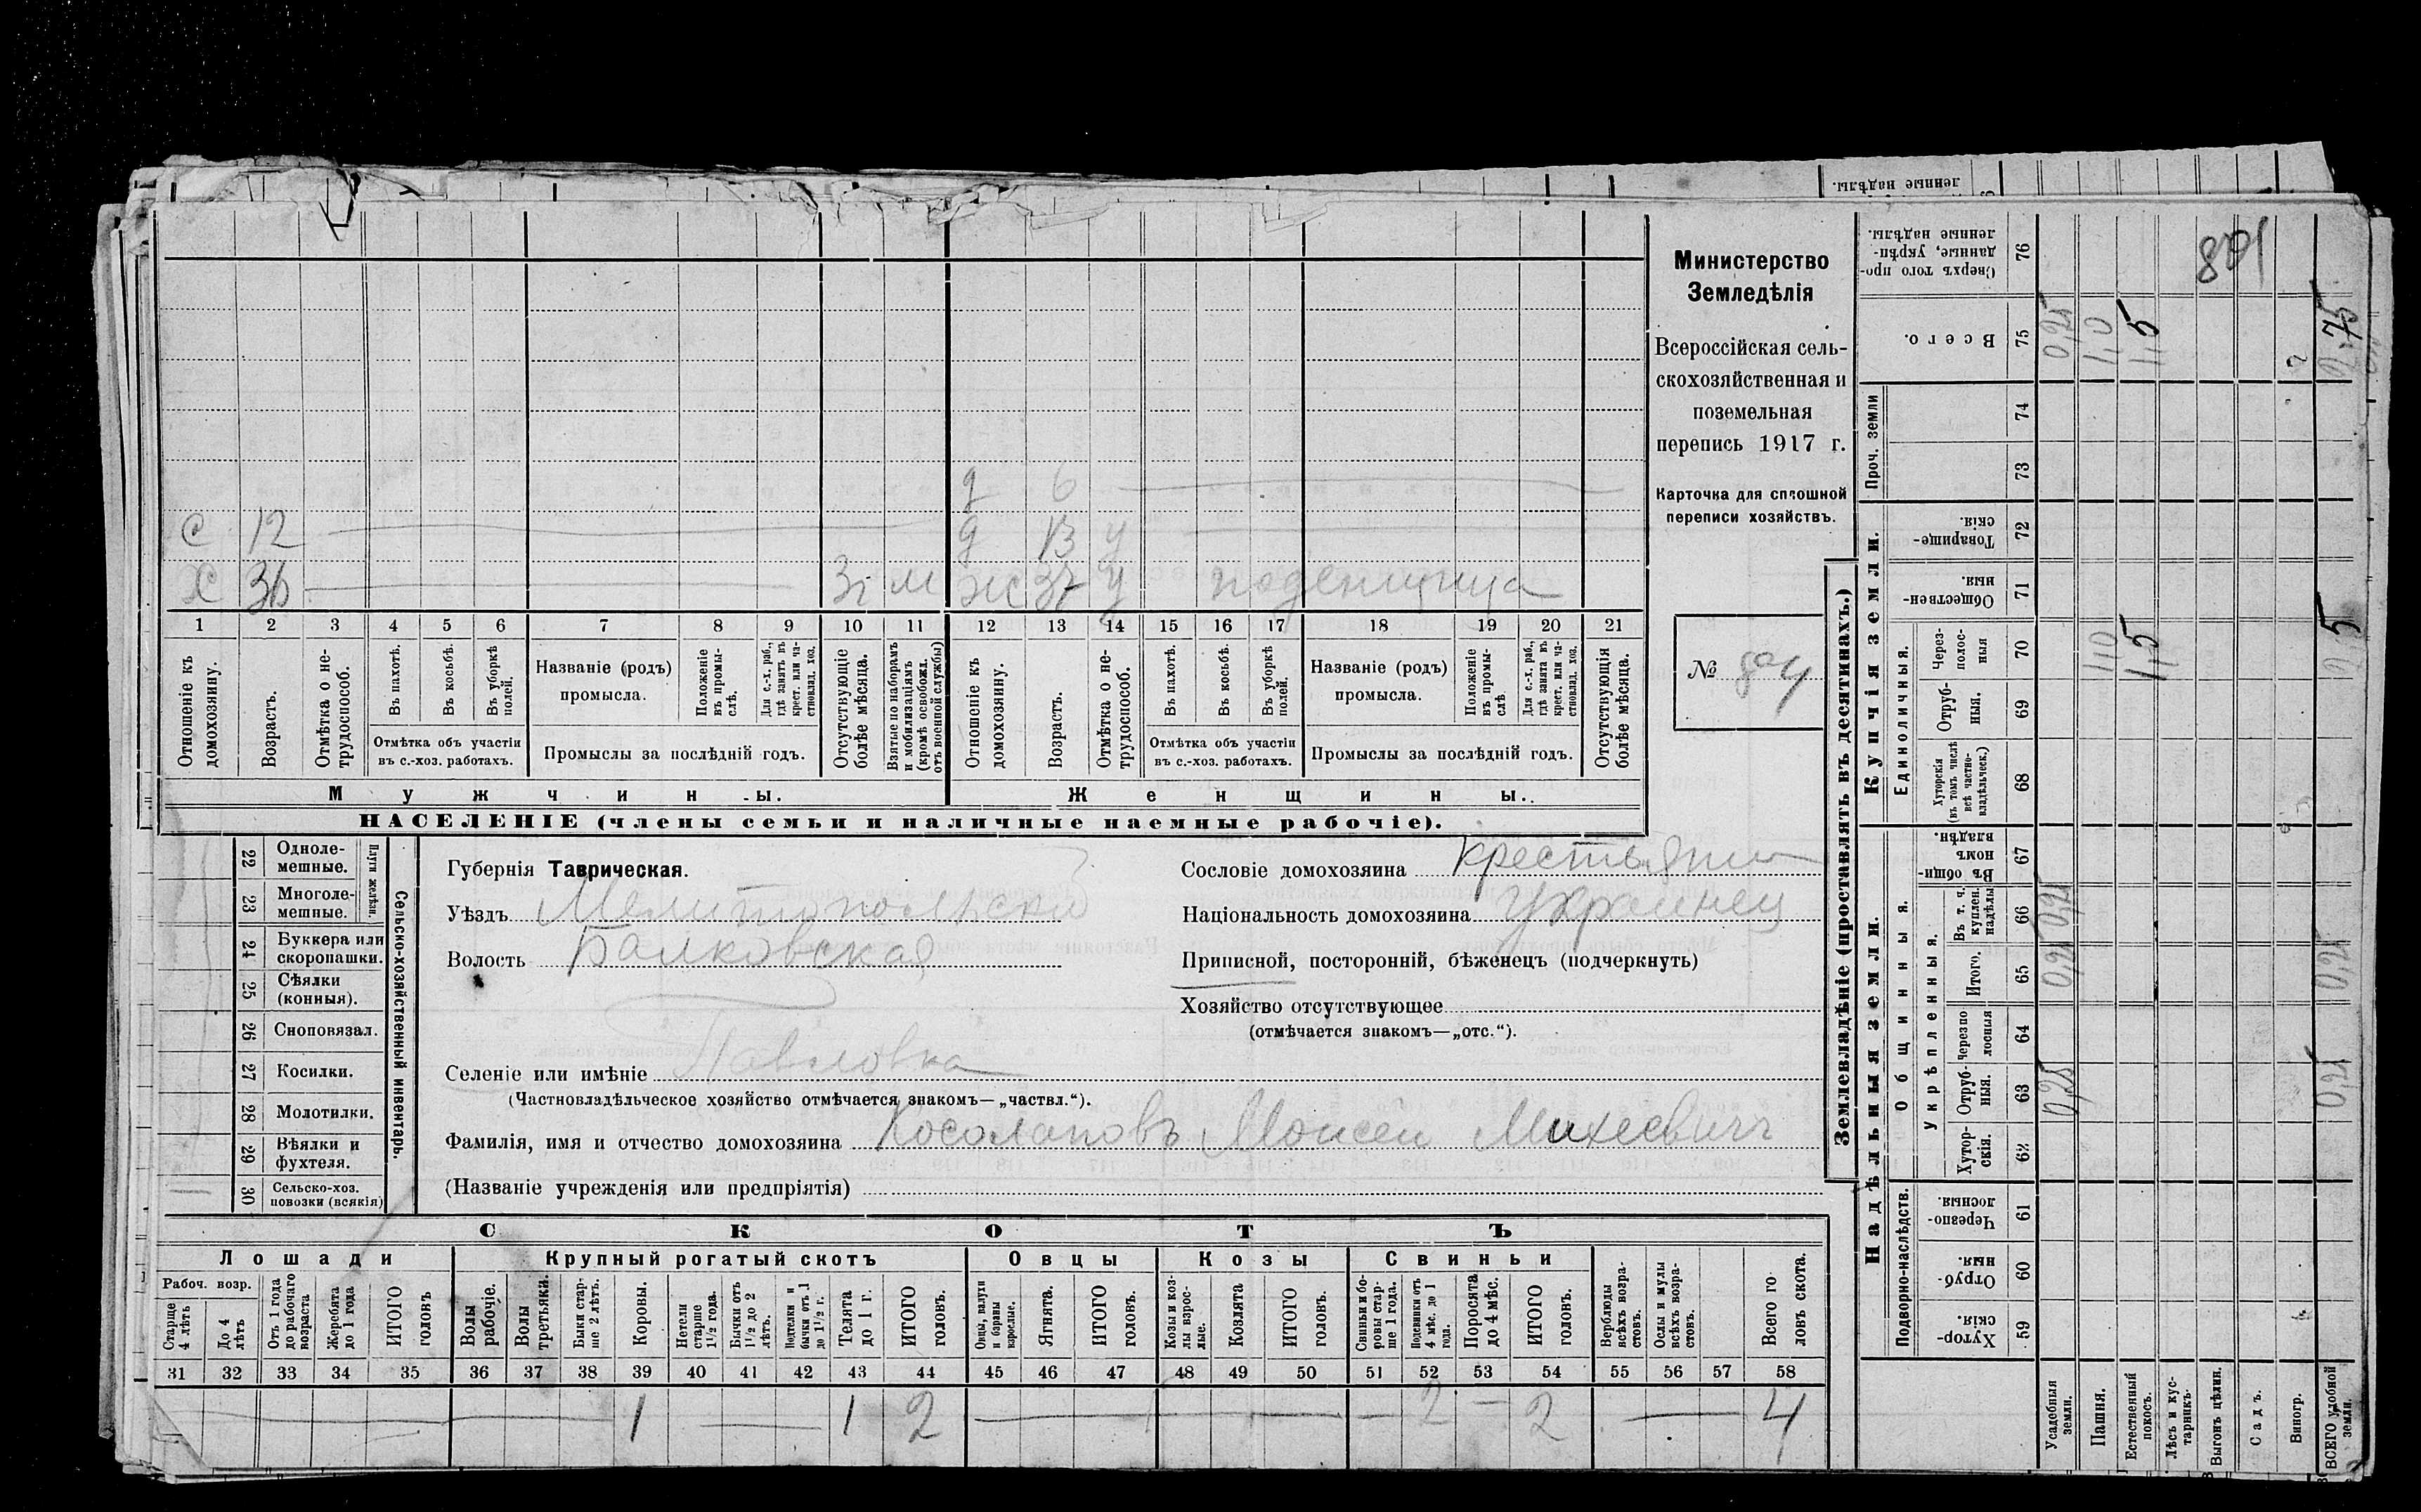 ленные надѣлы.
с 12 д 6
д 13 у
Х 36 м ж 37 у поденщица
1 2 3 4 5 6 7 8 9 10 11 12 13 14 15 16 17 18 19 20 21
Отношеніе къ домохозяину.
Возрастъ.
Отмѣтка о нетрудоспособ.
Въ пахотѣ.
Въ косьбѣ.
Въ уборкѣ полей.
Отмѣтка объ участіи
въ с.-хоз. работахъ.
Названіе (родъ)
промысла.
Положеніе въ промыслѣ.
Для с.-х. раб., гдѣ занятъ въ крест. или частновлад. хоз.
Промыслы за послѣдній годъ.
Отсутствующіе болѣе мѣсяца.
Взятые по наборамъ и мобилизаціямъ (кромѣ освобожд. отъ военной службы)
Отношеніе къ домохозяину.
Возрастъ.
Отмѣтка о нетрудоспособ.
Въ пахотѣ.
Въ косьбѣ.
Въ уборкѣ полей.
Отмѣтка объ участіи
въ с.-хоз. работахъ.
Названіе (родъ)
промысла.
Положеніе въ промыслѣ
Для с.-х. раб., гдѣ занята въ крест. или частновлад. хоз.
Промыслы за послѣдній годъ.
Отсутствующія болѣе мѣсяца.
Мужчины.
Женщины.
НАСЕЛЕНІЕ (члены семьи и наличные наемные рабочіе).
Министерство
Земледѣлія
Всероссійская сель-
скохозяйственная и
поземельная
перепись 1917 г.
Карточка для сплошной
переписи хозяйствъ.
№ 804
Сельско-хозяйственный инвентарь.
Плуги желѣзн.
22 Одноле-
мешные.
23 Многоле-
мешные.
24 Буккера или
скоропашки.
25 Сѣялки
(конныя).
26 Сноповязал.
27 Косилки.
28 Молотилки.
29 Вѣялки и
фухтеля.
30 Сельско-хоз.
повозки (всякія)
Губернія Таврическая.
Уѣздъ Мелитопольский
Волость Балковская
Селеніе или имѣніе Павловка
(Частновладѣльческое хозяйство отмѣчается знакомъ—„частвл.“).
Фамилія, имя и отчество домохозяина Косолаповъ Моисей Михеевичъ
(Названіе учрежденія или предпріятія)
Сословіе домохозяина крестьянин
Національность домохозяина украинец
Приписной, посторонній, бѣженецъ (подчеркнуть)
Хозяйство отсутствующее
(отмѣчается знакомъ—„отс.“).
СКОТЪ
Лошади
Крупный рогатый скотъ
Овцы
Козы
Свиньи
Рабоч. возр.
Старше 4 лѣтъ
До 4 лѣтъ
Отъ 1 года до рабочаго возраста
Жеребята до 1 года
ИТОГО головъ
Волы рабочіе.
Волы третьяки.
Быки старше 2 лѣтъ.
Коровы.
Нетели старше 1½ года.
Бычки отъ 1½ до 2 лѣтъ.
Подтелки и бычки отъ 1 до 1½ г.
Телята до 1 г.
ИТОГО головъ.
Овцы, валухи и бараны взрослые.
Ягнята.
ИТОГО головъ.
Козы и козлы взрослые.
Козлята
ИТОГО головъ.
Свиньи и боровы старше 1 года.
Подсвинки отъ 4 мѣс. до 1 года.
Поросята до 4 мѣс.
ИТОГО головъ.
Верблюды всѣхъ возрастовъ.
Ослы и мулы всѣхъ возрастовъ.
Всего головъ скота.
31 32 33 34 35 36 37 38 39 40 41 42 43 44 45 46 47 48 49 50 51 52 53 54 55 56 57 58
1 1 2 2 2 4
Землевладѣніе (проставлять въ десятинахъ.)
Купчія земли.
Надѣльныя земли.
Сверхъ того проданные, укрѣпленные надѣлы. 76 801
Всего. 75 0,25 1,0 1,5 2,75
Проч. земли
74
73
Товарищескія. 72
Общественныя. 71
Единоличныя.
Черезполосныя 70 1,0 1,5
Отрубныя. 69
Хуторскія (въ томъ числѣ всѣ частновладѣльческ.) 68
Общинныя.
Въ общиномъ владѣн. 67
Укрѣпленныя.
Въ т. ч. куплен. надѣлы 66 0,25
Итого. 65 0,25 0,25
Черезполосныя 64
Отрубныя. 63 0,25 0,25
Хуторскія. 62
Подворно-наслѣдств.
Черезполосныя. 61
Отрубныя. 60
Хуторскія. 59
Усадебныя земли.
Пашня.
Естественный покосъ.
Лѣсъ и кустарникъ.
Выгонъ цѣлин.
Садъ.
Виногр.
ВСЕГО удобной земли.